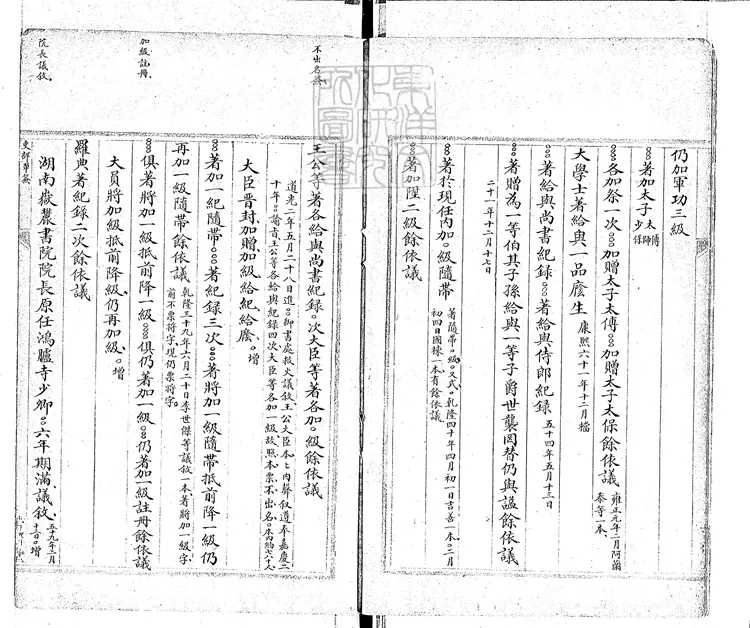 仍加軍功三級
○○著加太子太傅師少保
○○○各加祭一次○○○加贈太子太傅○○○加贈太子太保餘依議 雍正元年二月阿蘭泰等一本
大學士著給與一品廕生 康熙六十一年十二月檔
○○○著給與尚書紀錄○○○著給與侍郎紀錄 五十四年五月十三日
○○○著贈為一等伯其子孫給與一等子爵世襲罔替仍與諡餘依議
二十一年十二月十七日
○○著於現任內加○級隨帶 著隨帶○級○又式○乾隆四十年四月初一日吉善一本三月初四日國棟一本有餘依議
○○著加陞二級餘依議
不出名簽
王公等著各給與尚書紀錄○次大臣等著各加○級餘依議
道光二年五月二十八日進○御書處救火議敘王公大臣本
十年○諭旨王公等各給與紀錄四次大臣等各加一級故照本票不出名○
大臣晋封加贈加級給紀給廕○增
○○○著加一紀隨帶○○○著紀錄三次○○○著將加一級隨帶抵前降一級仍
再加一級隨帶餘依議 乾隆三十九年六月二十日李世傑等議敘一本著將加一級字前不票將字現仍票將字○
加級註冊
○○○俱著將加一級抵前降一級○○○俱仍著加一級○○○仍著加一級註冊餘依議
大員將加級抵前降級仍再加級○增
羅典著紀錄二次餘依議
院長議敘
湖南嶽麓書院院長原任鴻臚寺少卿○○六年期滿議敘 五十九年二月十一日○增
吏部單簽